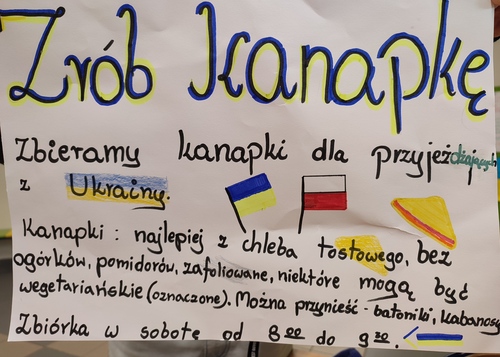 Zrób kanapkę
Zbieramy kanapki dla przyjeżdżających
z Ukrainy.
Kanapki : najlepiej z chleba tostowego, bez
ogórków, pomidorów, zafoliowane, niektóre mogą być
wegetariańskie (oznaczone). Można przynieść - batoniki, kabanosy
Zbiórka w sobotę od 8 00 do 9 30.